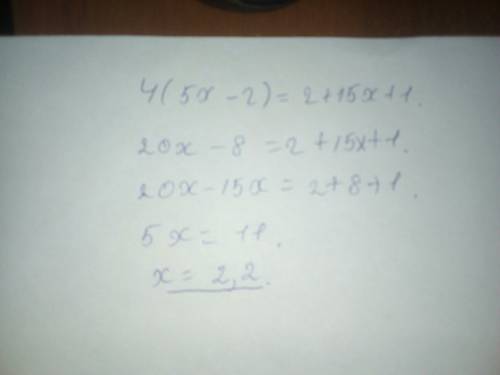 4(5x-2)=2+15x+1.
20x-8=2+15x+1.
20x-15x=2+8+1.
5x=11.
x=2,2.